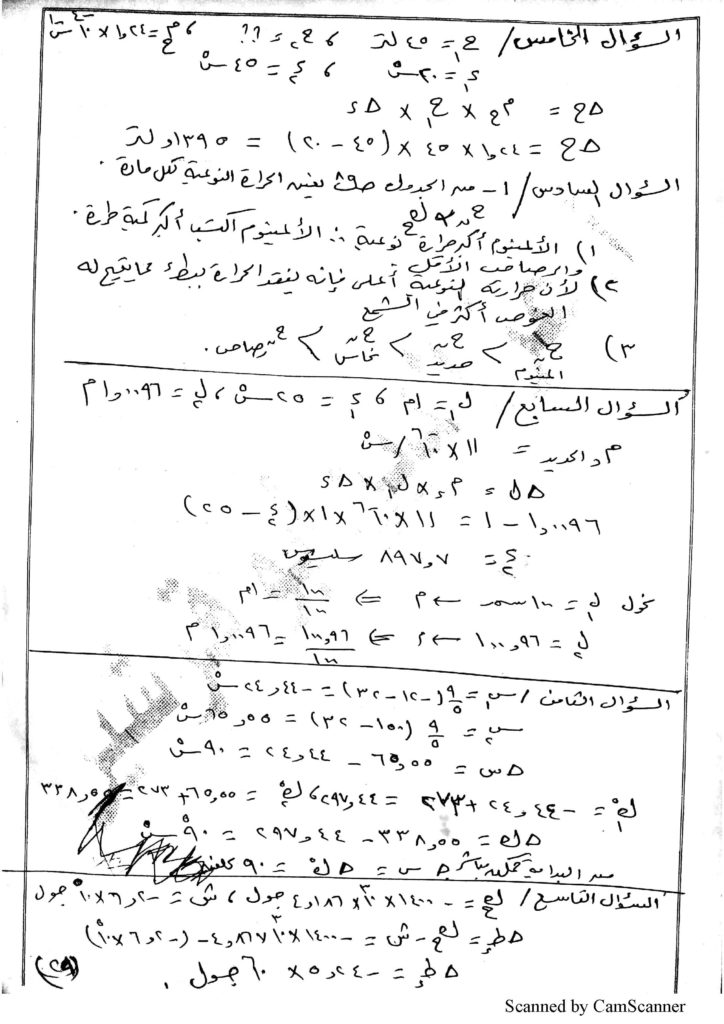 السؤال الخامس / ح١ = ٤٥ لتر ، ح٢ ؟؟ ، مح = ١,٢٤ × ١٠-٤ /سْ
د١ = ٢٠ سْ ، د٢ = ٤٥ سْ
Δح = مح × ح١ × Δد
Δح = ١,٢٤ × ٤٥ × (٤٥ - ٢٠) = ٠,١٣٩٥ لتر
السؤال السادس / ١- من الجدول نعين الحرارة النوعية لكل مادة.
١) الألمنيوم أكبر حرارة نوعية ∴ الألمنيوم اكتسب أكبر كمية حرارة.
والرصاص الأقل
٢) لأن حرارته النوعية أعلى فإنه يفقد الحرارة ببطء مما يتيح له
الغوص أكثر في الشمع
٣) حـن المنيوم > حـن حديد > حـن نحاس > حـن رصاص.
السؤال السابع / ل١ = ١م ، د١ = ٢٥ سْ ، ل٢ = ١,٠٠٩٦ م
م د الحديد = ١١ × ١٠-٦ /سْ
Δل = مد × ل١ × Δد
١,٠٠٩٦ - ١ = ١١ × ١٠-٦ × ١ × (د٢ - ٢٥)
د٢ = ٨٩٧,٧ سلسيوس
نحول ل١ = ١٠٠ سم ← م ⇐ ١٠٠/١٠٠ = ١م
ل٢ = ١٠٠,٩٦ ← م ⇐ ١٠٠,٩٦/١٠٠ = ١,٠٠٩٦ م
السؤال الثامن / س١ = ٥/٩ (-١٢-٣٢) = -٢٤,٤٤ سْ
س٢ = ٥/٩ (١٥٠-٣٢) = ٦٥,٥٥ سْ
Δس = ٦٥,٥٥ - ٢٤,٤٤ = ٩٠ سْ
ك١ = -٢٤,٤٤ + ٢٧٣ = ٢٩٧,٤٤ ، ك٢ = ٦٥,٥٥ + ٢٧٣ = ٣٣٨,٥٥
Δك = ٣٣٨,٥٥ - ٢٩٧,٤٤ = ٩٠ سْ
من البداية Δس = Δك = ٩٠ كلفن
السؤال التاسع / كح = -١٤٠٠ × ١٠٣ × ٤,١٨٦ جول ، ش = -٦,٢ × ١٠٥ جول
Δط = كح - ش = -١٤٠٠ × ١٠٣ × ٤,١٨٦ - (-٦,٢ × ١٠٥)
Δط = -٥,٢٤ × ١٠٦ جول.
(٢٩)
Scanned by CamScanner